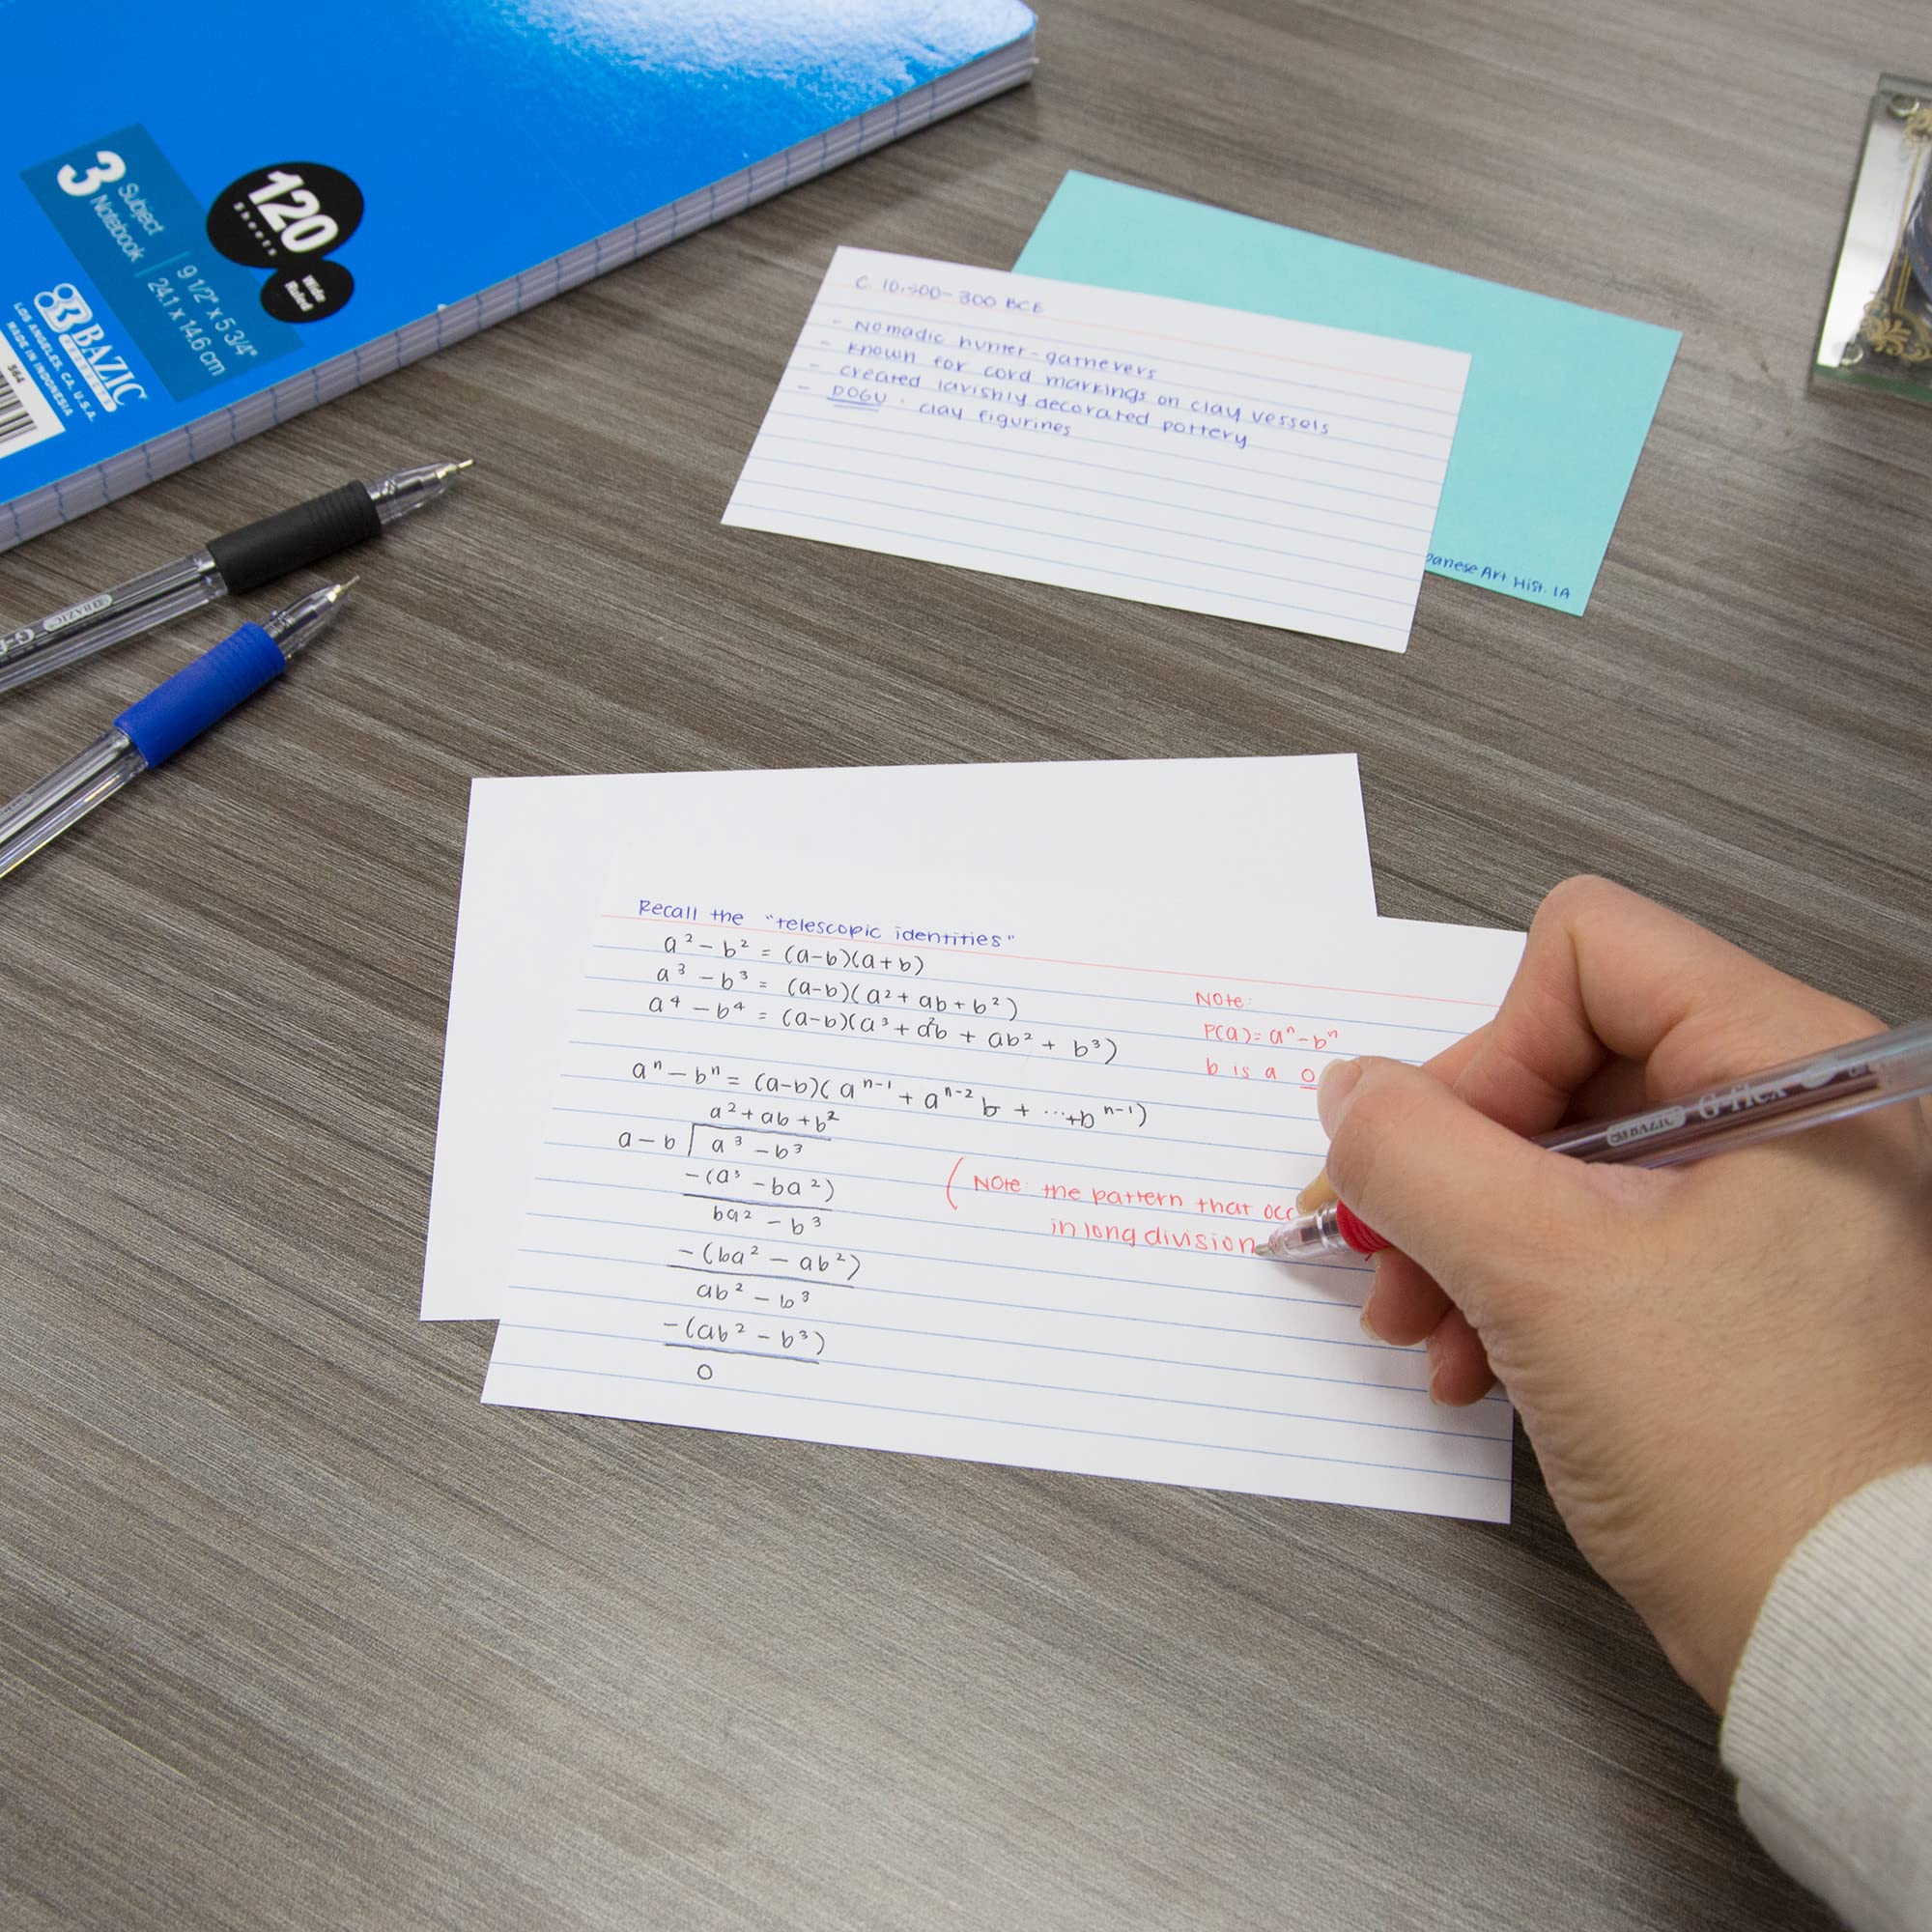 3 Subject
Notebook
9 1/2" x 5 3/4"
24.1 x 14.6 cm
120
Sheets
Wide
Ruled
BAZIC
PRODUCTS
LOS ANGELES, CA, U.S.A.
MADE IN INDONESIA
564
C 10,500-300 BCE
- Nomadic hunter-gatherers
- known for cord markings on clay vessels
- created lavishly decorated pottery
- DOGU: clay figurines
Art Hist. 1A
BAZIC
Recall the "telescopic identities"
a² - b² = (a-b)(a+b)
a³ - b³ = (a-b)(a² + ab + b²)
a⁴ - b⁴ = (a-b)(a³ + a²b + ab² + b³)
aⁿ - bⁿ = (a-b)(aⁿ⁻¹ + aⁿ⁻² b + ... + bⁿ⁻¹)
a² + ab + b²
a - b a³ - b³
-(a³ - ba²)
ba² - b³
-(ba² - ab²)
ab² - b³
-(ab² - b³)
0
Note:
P(a) = aⁿ - bⁿ
b is a
(Note: the pattern that
in long division
BAZIC G-Flex